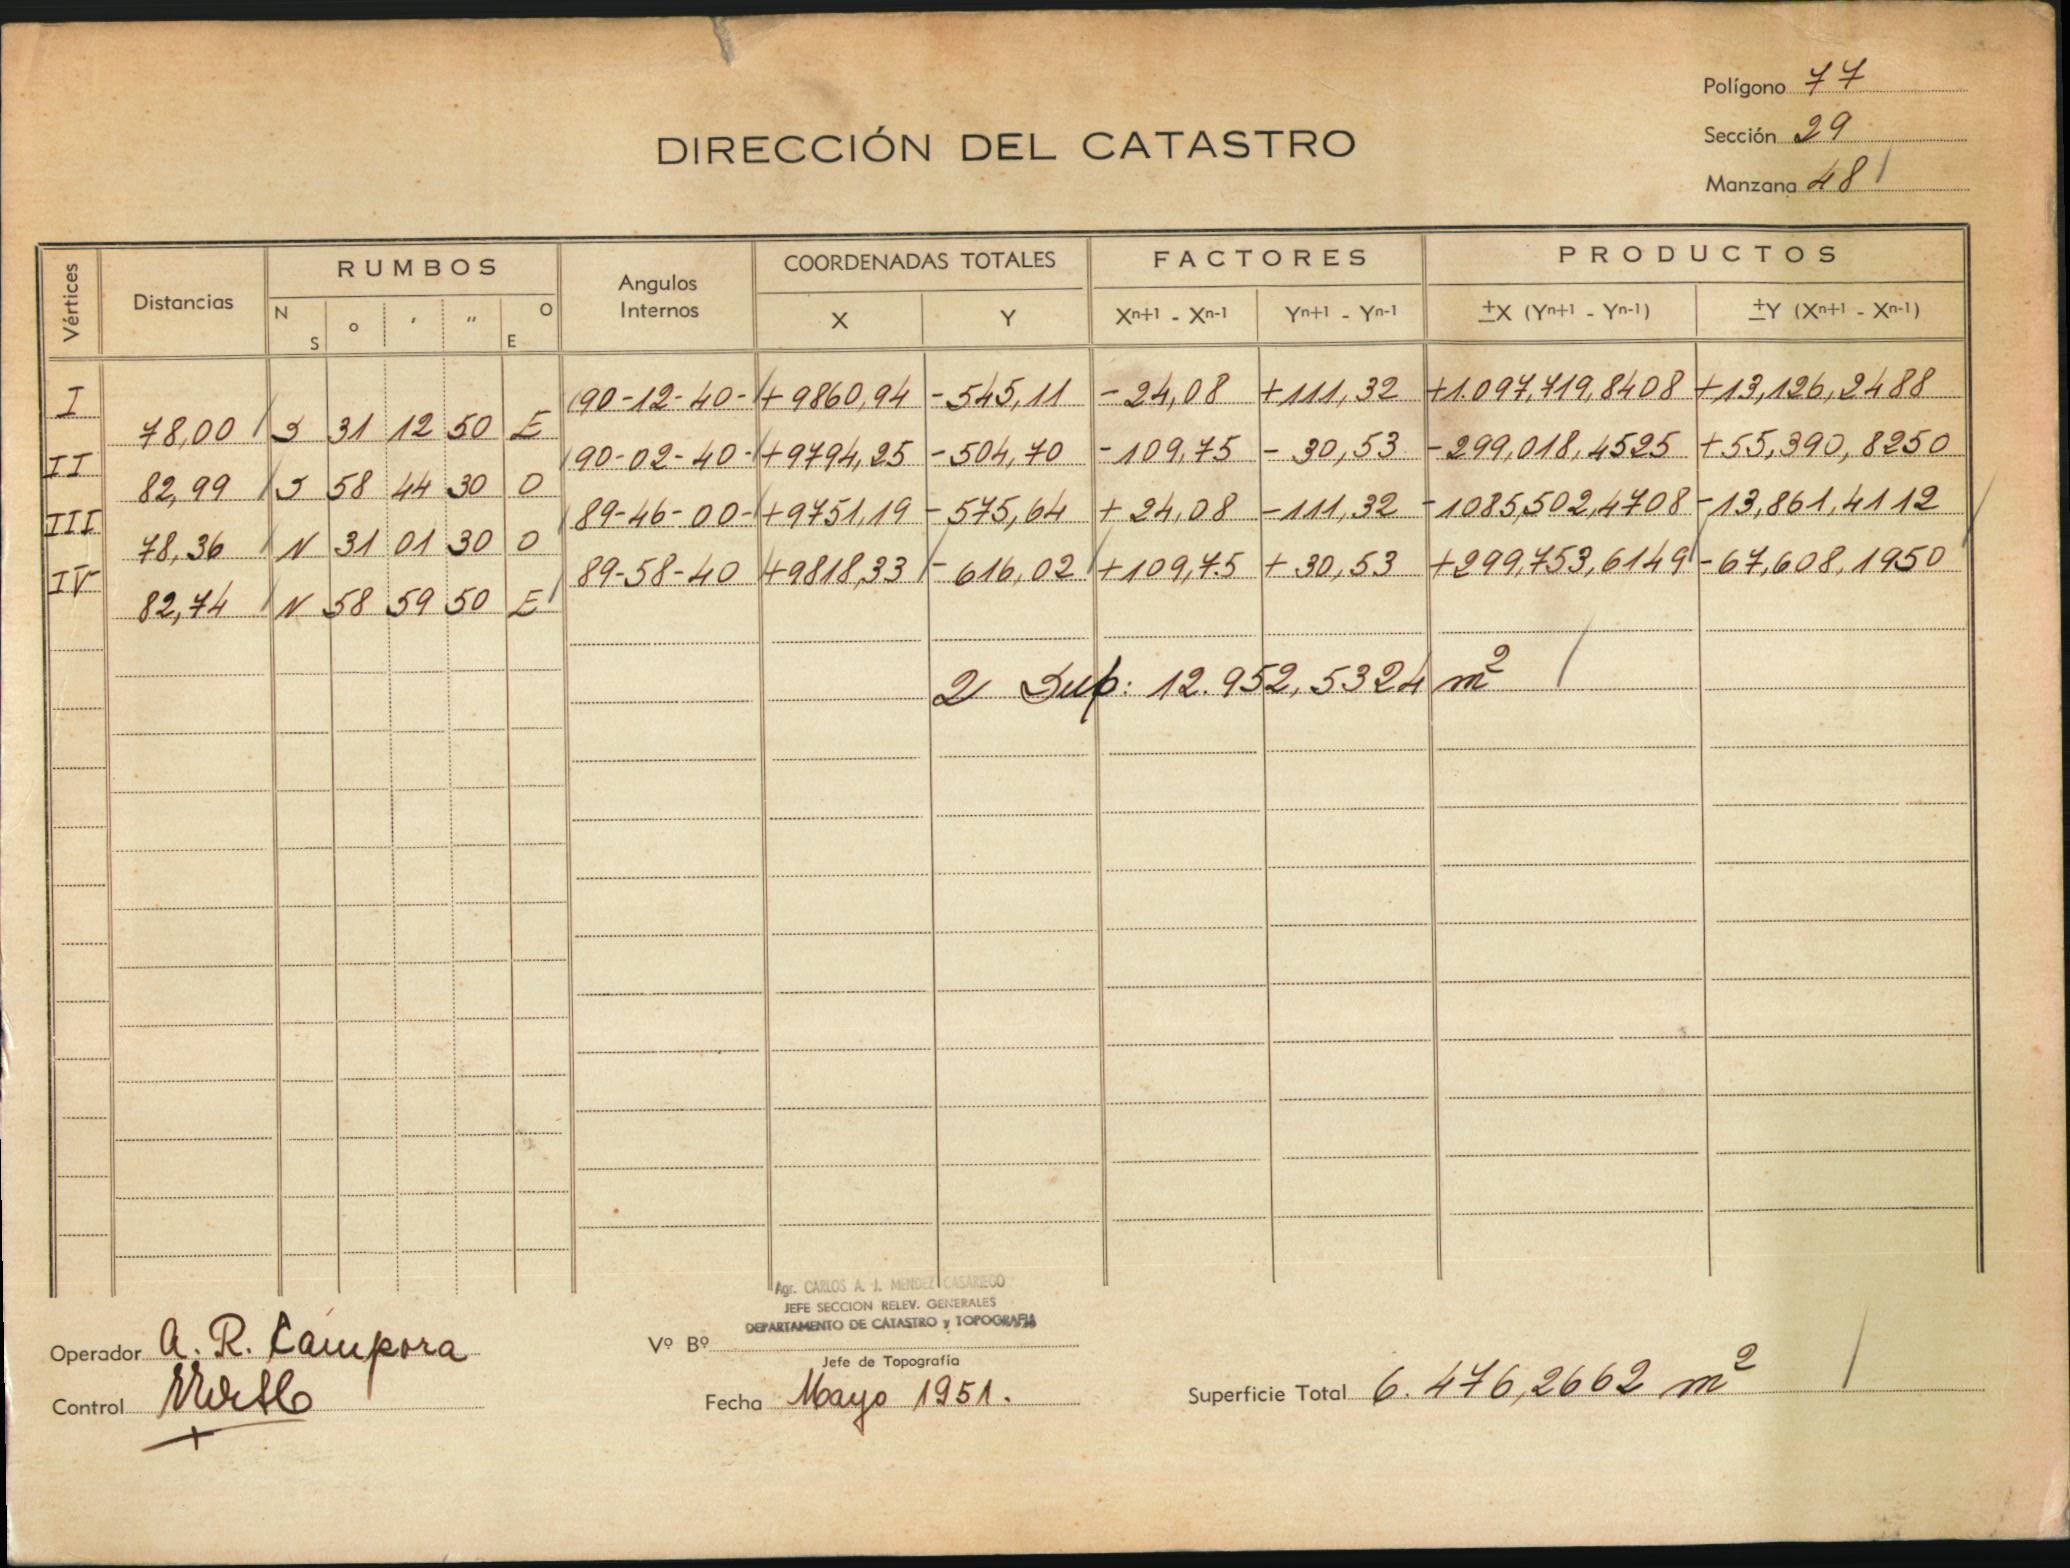 Polígono 77
DIRECCIÓN DEL CATASTRO
Sección 29
Manzana 48
Vértices Distancias RUMBOS Angulos Internos COORDENADAS TOTALES FACTORES PRODUCTOS
N S ° ' " O E X Y Xn+1 - Xn-1 Yn+1 - Yn-1 ±X (Yn+1 - Yn-1) ±Y (Xn+1 - Xn-1)
I 90-12-40- +9860,94 -545,11 -24,08 +111,32 +1.097,719,8408 +13,126,2488
78,00 S 31 12 50 E
II 90-02-40- +9794,25 -504,70 -109,75 -30,53 -299,018,4525 +55,390,8250
82,99 S 58 44 30 O
III 89-46-00- +9751,19 -575,64 +24,08 -111,32 -1085,502,4708 -13,861,4112
78,36 N 31 01 30 O
IV 89-58-40 +9818,33 -616,02 +109,75 +30,53 +299,753,6149 -67,608,1950
82,74 N 58 59 50 E
2 Sup: 12.952,5324 m2
Agr. CARLOS A. J. MENDEZ CASARIEGO
JEFE SECCION RELEV. GENERALES
DEPARTAMENTO DE CATASTRO y TOPOGRAFIA
Operador A. R. Cámpora
Vº Bº
Jefe de Topografía
Control
Fecha Mayo 1951.
Superficie Total 6.476,2662 m2